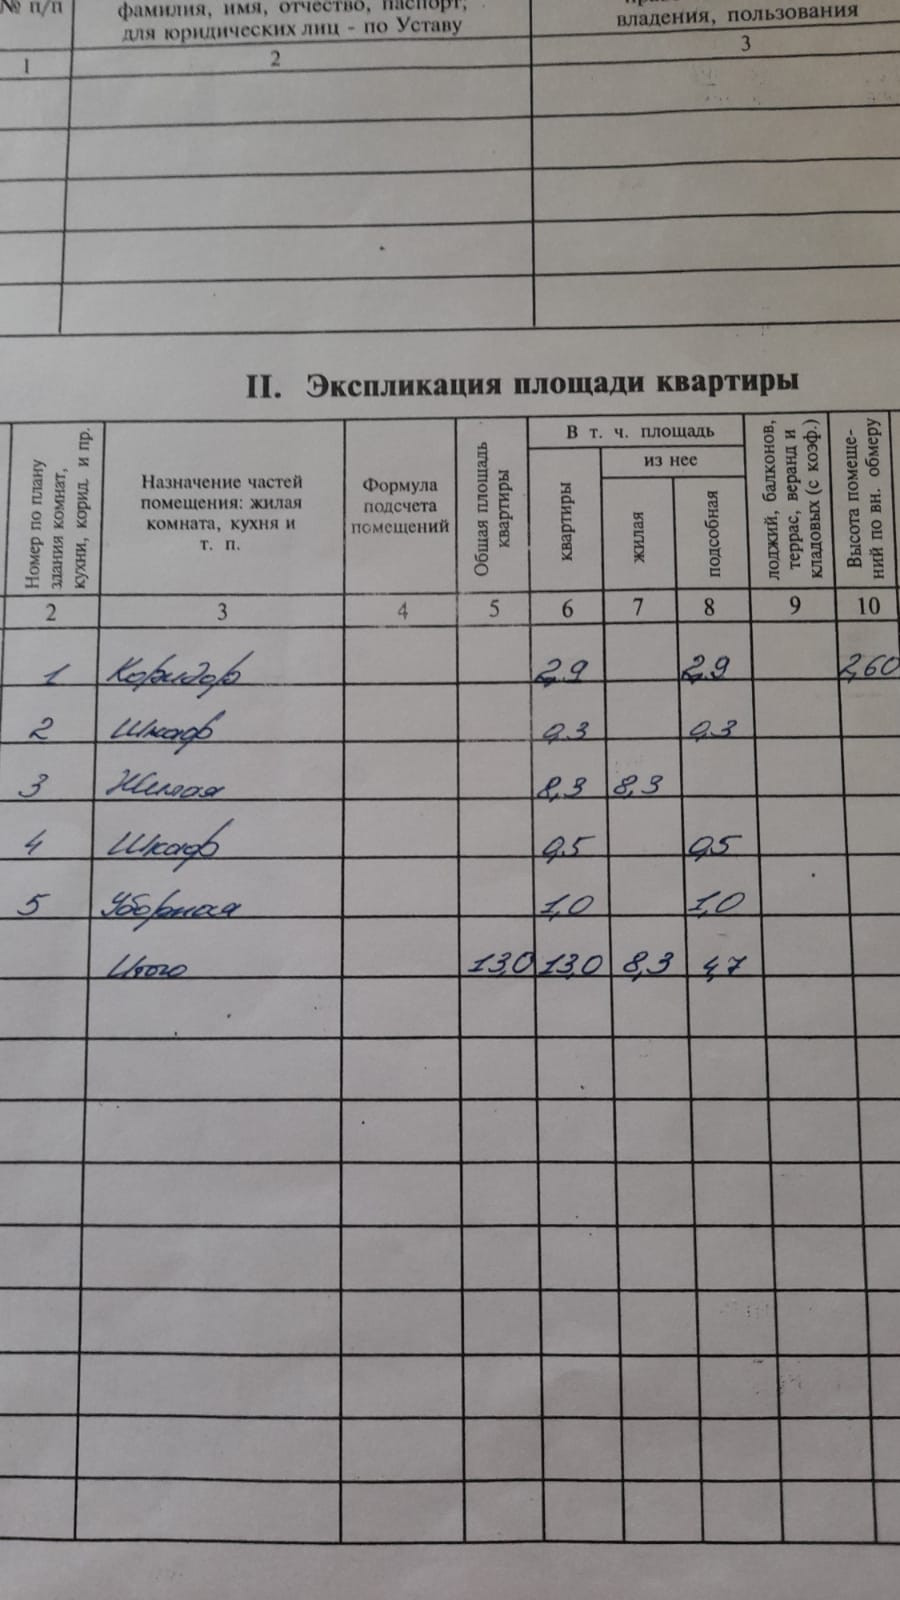 № п/п
фамилия, имя, отчество, паспорт,
для юридических лиц - по Уставу
владения, пользования
1 2 3
II. Экспликация площади квартиры
Номер по плану
здания комнат,
кухни, корид. и пр.
Назначение частей
помещения: жилая
комната, кухня и
т. п.
Формула
подсчета
помещений
Общая площадь
квартиры
В т. ч. площадь
из нее
квартиры
жилая
подсобная
лоджий, балконов,
террас, веранд и
кладовых (с коэф.)
Высота помеще-
ний по вн. обмеру
2 3 4 5 6 7 8 9 10
1 Коридор 2,9 2,9 2,60
2 Шкаф 0,3 0,3
3 Жилая 8,3 8,3
4 Шкаф 0,5 0,5
5 Уборная 1,0 1,0
Итого 13,0 13,0 8,3 4,7